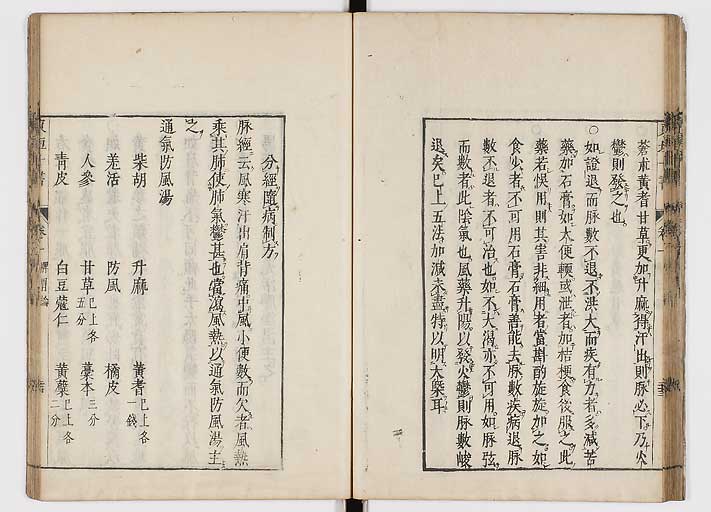 蒼朮黃耆甘草更加升麻得汗出則脉必下乃火
鬱則發之也
○如證退而脉數不退不洪大而疾有力者多減苦
藥加石膏如大便軟或泄者加桔梗食後服之此
藥若悞用則其害非細用者當斟酌旋旋加之如
食少者不可用石膏石膏善能去脉數疾病退脉
數不退者不可治也如不大渴亦不可用如脉弦
而數者此陰氣也風藥升陽以發火鬱則脉數峻
退矣已上五法加減未盡特以明大槩耳
分經隨病制方
脉經云風寒汗出肩背痛中風小便數而欠者風熱
乘其肺使肺氣鬱甚也當瀉風熱以通氣防風湯主
之
通氣防風湯
柴胡 升麻 黃耆已上各一錢
羗活 防風 橘皮
人參 甘草已上各五分 藁本三分
青皮 白豆蔻仁 黃蘗已上各二分